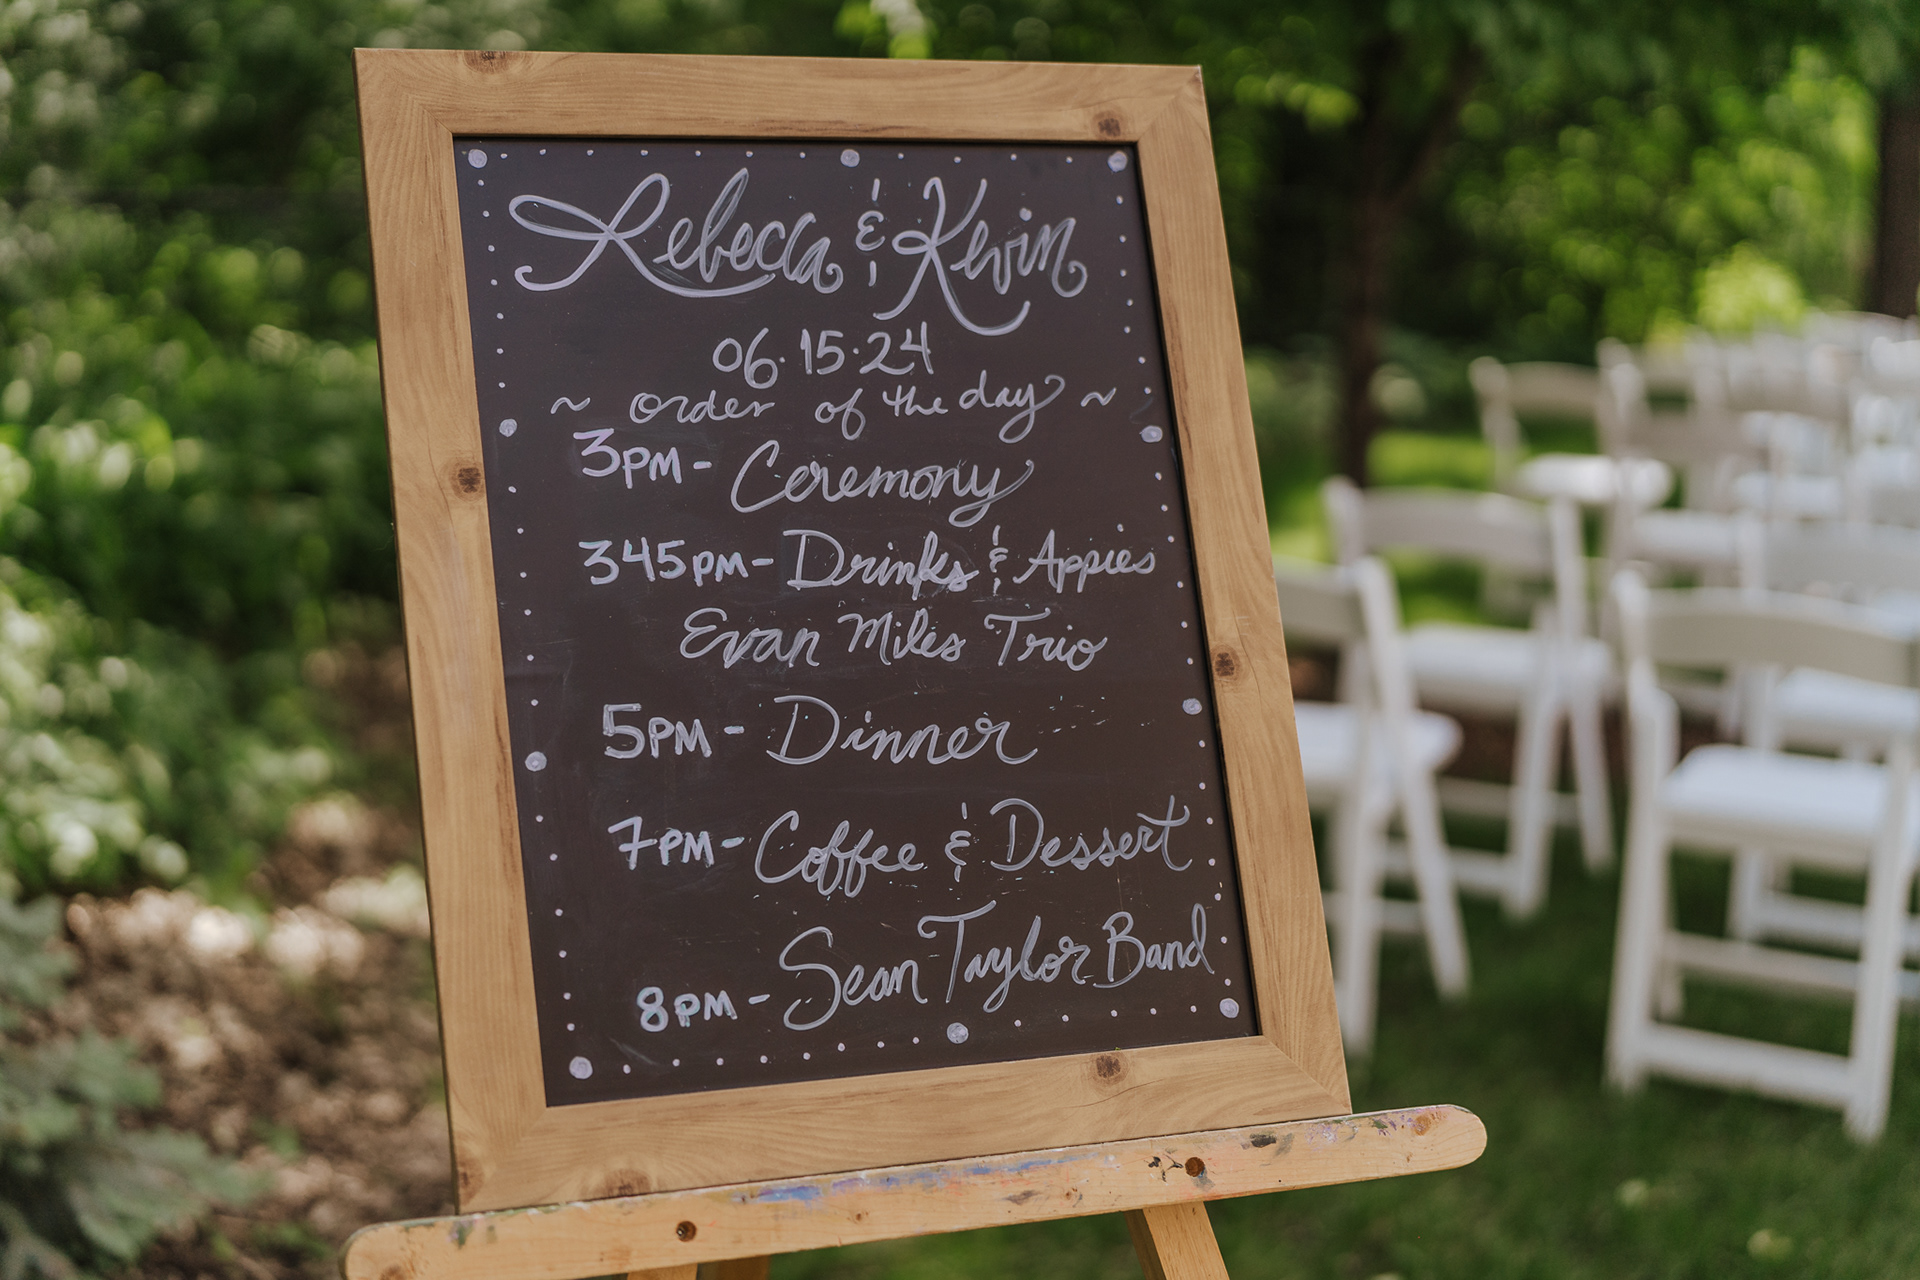 Rebecca & Kevin
06·15·24
~ order of the day ~
3PM - Ceremony
345PM - Drinks & Appies
Evan Miles Trio
5PM - Dinner
7PM - Coffee & Dessert
8PM - Sean Taylor Band